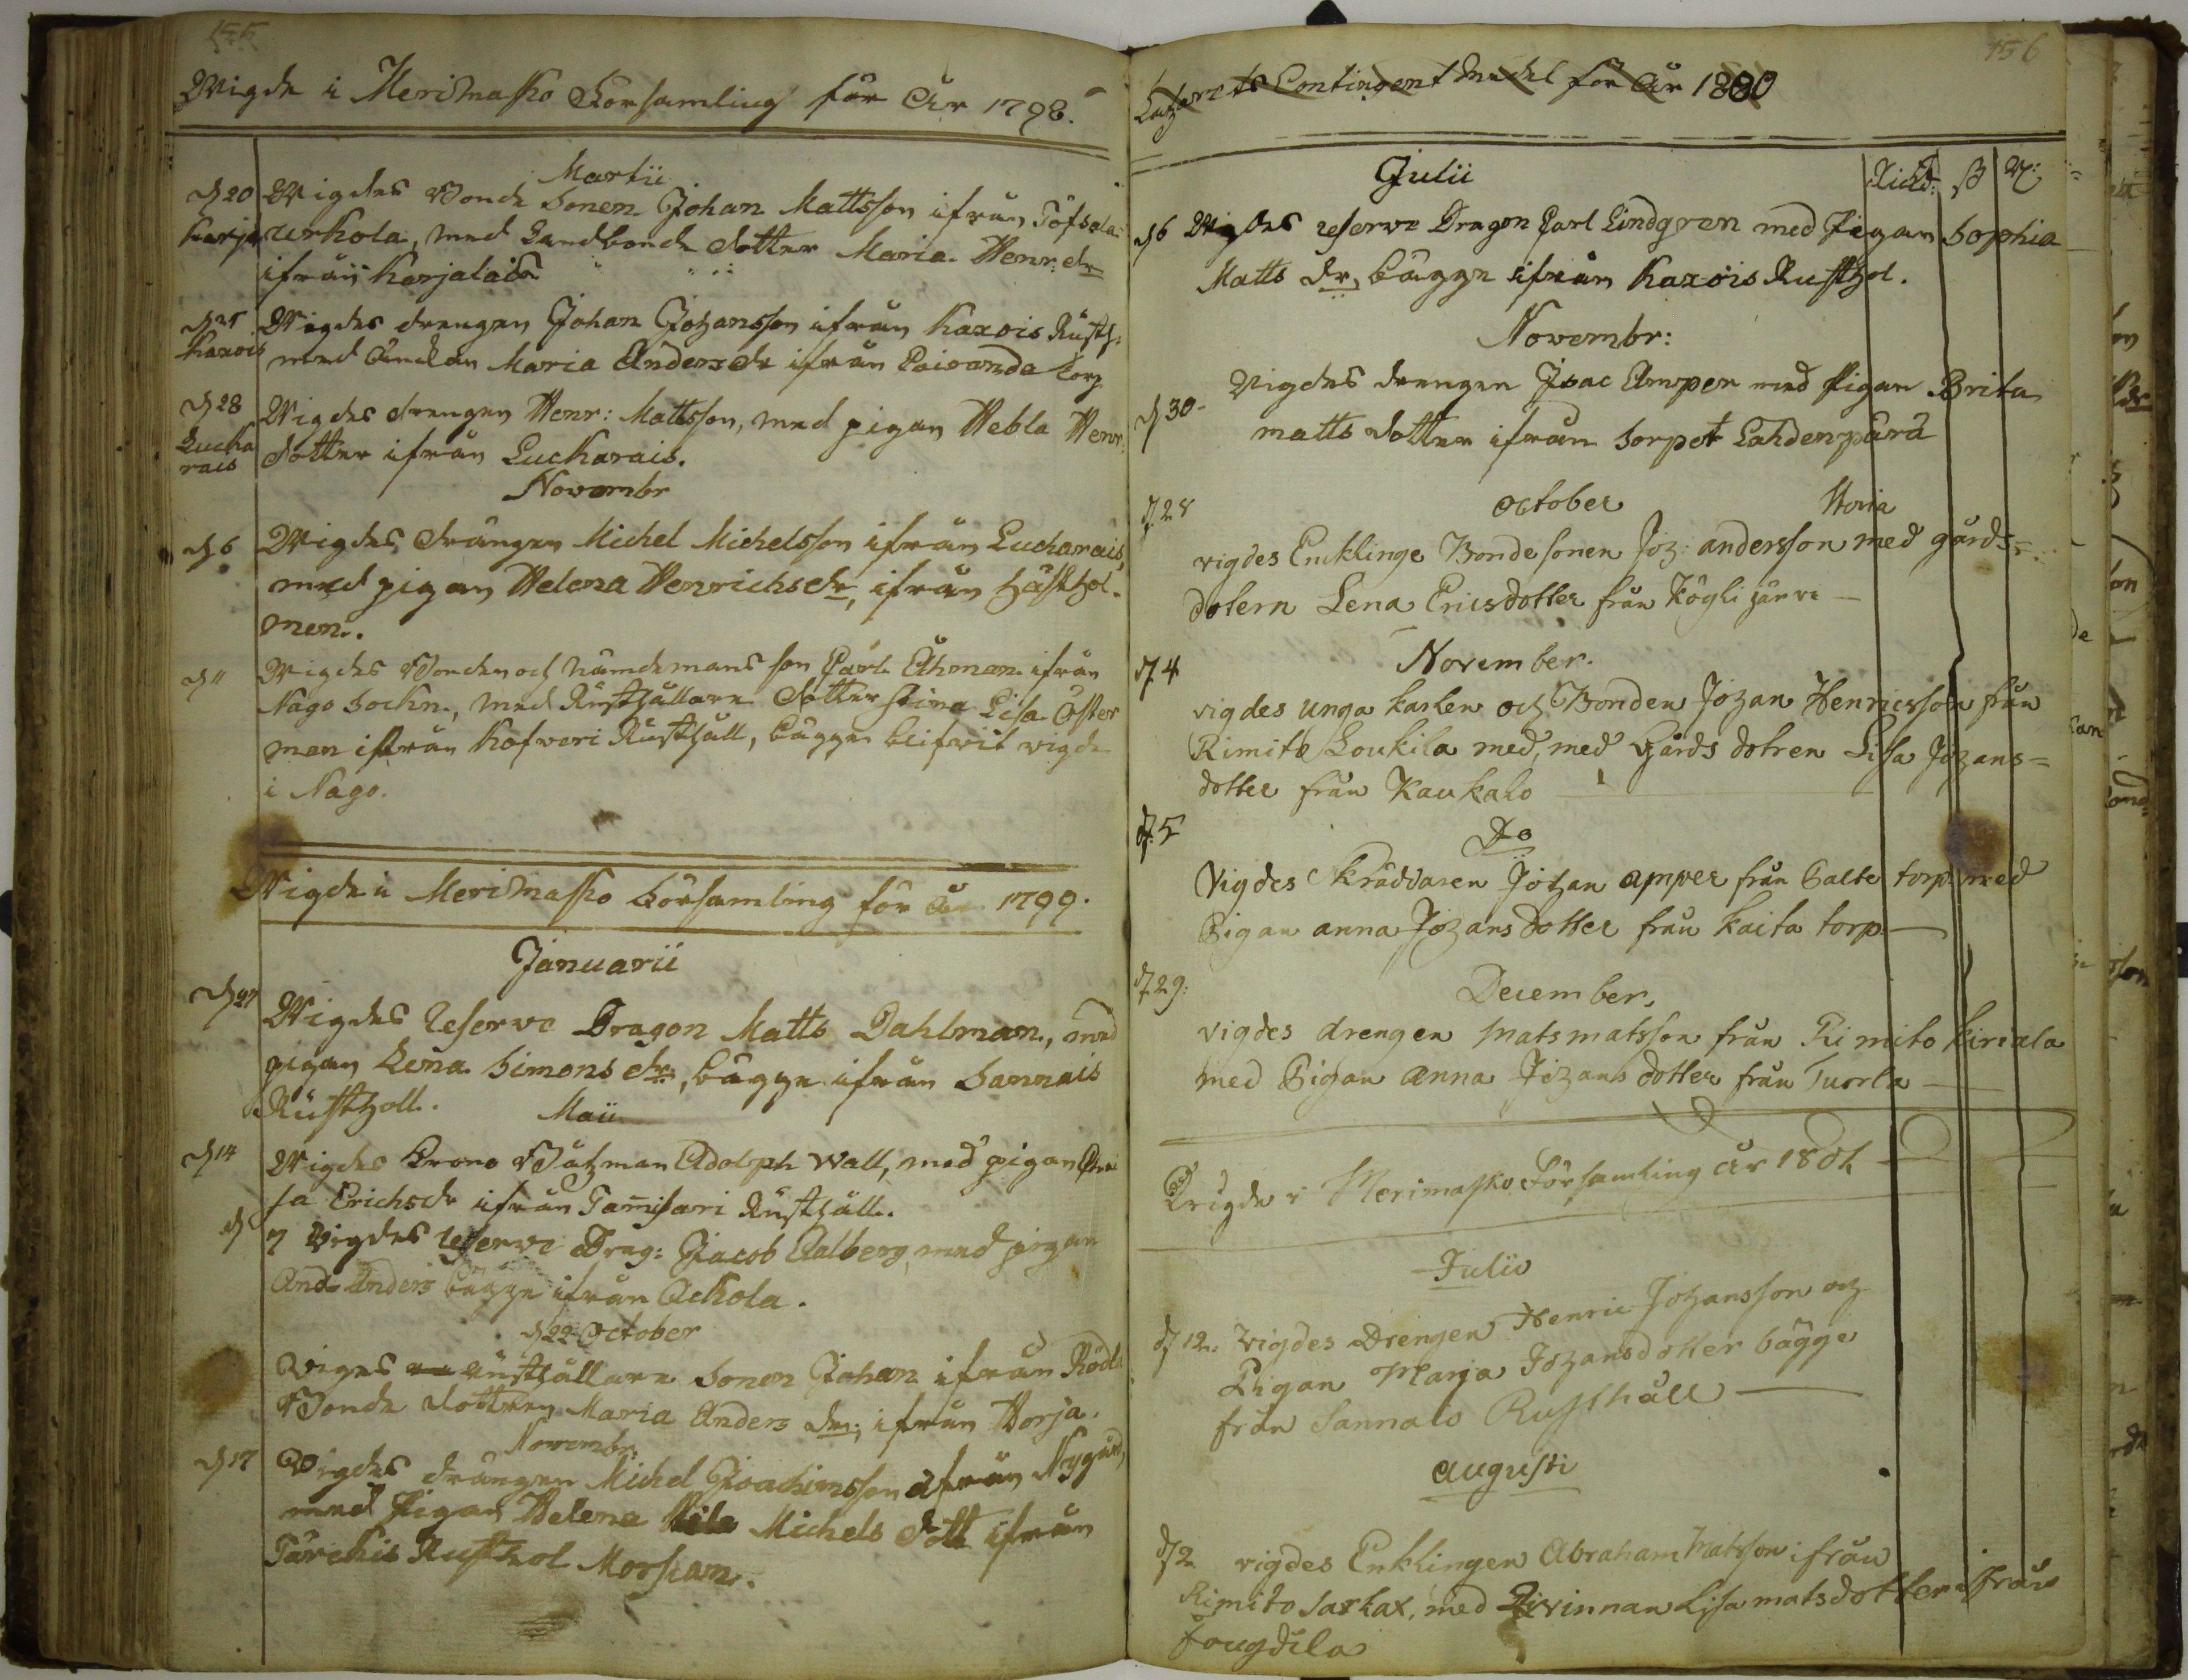 155
Wigde i Merimasko Församling för År 1798.
Martii
d 20 Wigdes Bonde Sonen Johan Mattsson ifrån Töfsala
Karja Urkola, med Landbonde dotter Maria Henr: dr
ifrån Karjalais
d 25 Wigdes drengen Johan Johansson ifrån Kaxois Rusth:
Kaxois med Änckan Maria Anders dr ifrån Taivanda torp
d 28 Wigdes drengen Henr: Mattsson, med pigan Hebla Henr:
Lucka
rais dotter ifrån Luckarais.
Novembr
d 6 Wigdes drängen Michel Michelsson ifrån Luckarais,
med pigan Helena Henrichs dr, ifrån Hästhol-
men.
d 11 Wigdes Bonden och Nämdemans son Carl Ahman ifrån
Nago Sockn, med Rusthållare dotter Stina Lisa Öster
man ifrån Kofweri Rusthåll, bägge blifwit wigde
i Nago.
Wigde i Merimasko Församling för År 1799.
Januarii
d 27
Wigdes Reserve Dragon Matts Dahlman, med
pigan Lena Simons dr, bägge ifrån Sannais
Rustholl.
Maii
d 14 Wigdes Crono Båtzman Adolph Wall, med pigan
sa Erichs dr ifrån Tam̄isari Rusthåll.
d 7 Wigdes Reserve Drag: Jacob Ealberg, med pigan
Anders bägge ifrån Ackola.
d 22 October
Wiges Rusthållare Sonen Johan ifrån Rödla
Bonde dottren Maria Anders dr, ifrån Horja.
Novembr.
d 17 Wigdes drängen Michel Joachimsson ifrån Nygård,
med Pigan Helena Michels dott ifrån
Tärckis Rusthol Morsiam.
156
Lazarets Contingent Medel för År 1880
Julii Rickd: ß
d 6 Wigdes reserve Dragon Carl Lindgren med Pigan Sophia
Matts dr, bägge ifrån Kaxois Rusthol.
Novembr:
d 30- Vigdes drengen Isac Amper med Pigan Brita
matts dotter ifrån torpet Lahdenpärä
d. 28 October Horia
vigdes Encklinge Bonde sonen Joh: andersson med gårds-
dotern Lena Ericsdotter från Kögli järvi
November.
d. 4
vigdes unga karlen och Bonden Johan Henricsson från
Rimito Loukila med, med Gårds dotren Lisa Johans=
dotter från Kaukalo
d. 5 Do
Vigdes Skräddaren Johan amper från Palte torp med
Pigan anna Johans dotter från Kaita torp
d. 29: December.
vigdes drengen mats matsson från Rimito kiriala
med Pigan anna Johans dotter från Tuorla
Wigde i Merimasko Församling år 1801
Julii
d 12. Vigdes Drengen Henric Johansson och
Pigan Marja Johansdotter bägge
från Sannais Rusthåll
augusti
d 2 vigdes Enklingen Abraham Matsson ifrån
Rimito Sarkax, med Qvinnan Lisa matsdotter ifrån
Fougdila